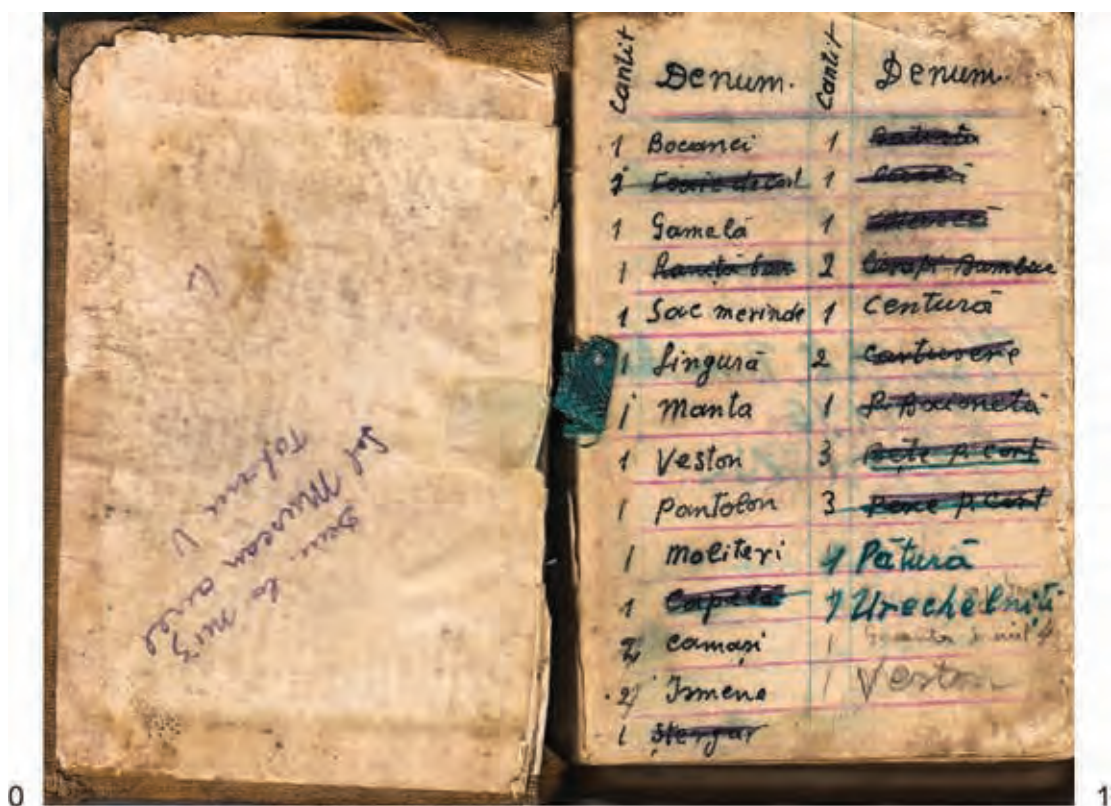 Sol Muresan aurel
Tohanu V
Cantit Denum. Cantit Denum.
1 Bocanci 1
1 Foaie de cort 1
1 Gamelă 1
1 Raniță 2 Ciorapi Bumbac
1 Sac merinde 1 Centură
1 Lingură 2 Cartușere
1 Manta 1 P. Baionetă
1 Veston 3 Bețe p. cort
1 Pantolon 3 p. Cort
1 Moliteri 1 Pătură
1 Capelă 1 Urechelniți
2 Camași 1
2 Ismene 1 Veston
1 Ștergar
0 1